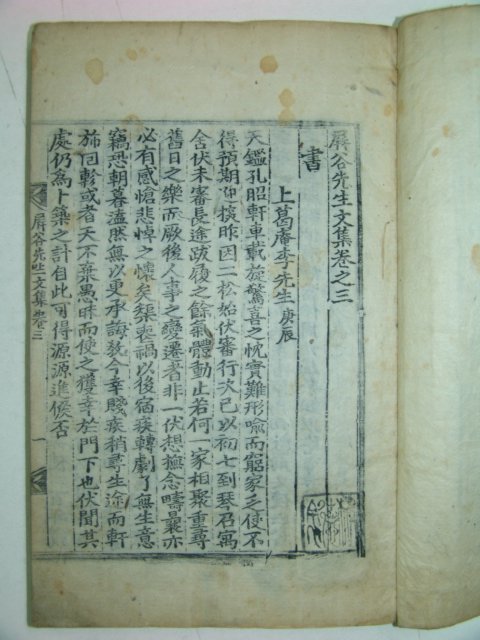 屛谷先生文集卷之三
書
上葛庵李先生 庚辰
天鑑孔昭軒車載旋驚喜之忱實難形喩而窮家乏使不
得預期迎候昨因二松始伏審行次已以初七到琴召寓
舍伏未審長途跋履之餘氣體動止若何一家相聚重尋
舊日之樂而厥後人事之變遷者非一伏想撫念疇曩亦
必有感愴悲悼之懷矣榘喪禍以後宿疾轉劇了無生意
竊恐朝暮溘然無以更承誨敎今幸賤疾稍尋生途而軒
旆回軫或者天不棄愚昧而使之獲幸於門下也伏聞其
處仍爲卜築之計自此可得源源進候否
屛谷先生文集 卷三
一